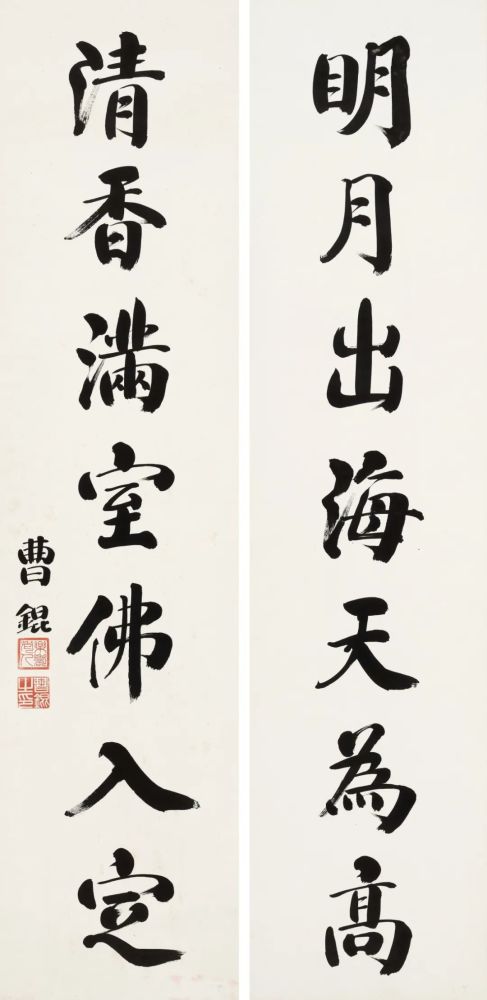 明月出海天為高
清香滿室佛入定
曹錕